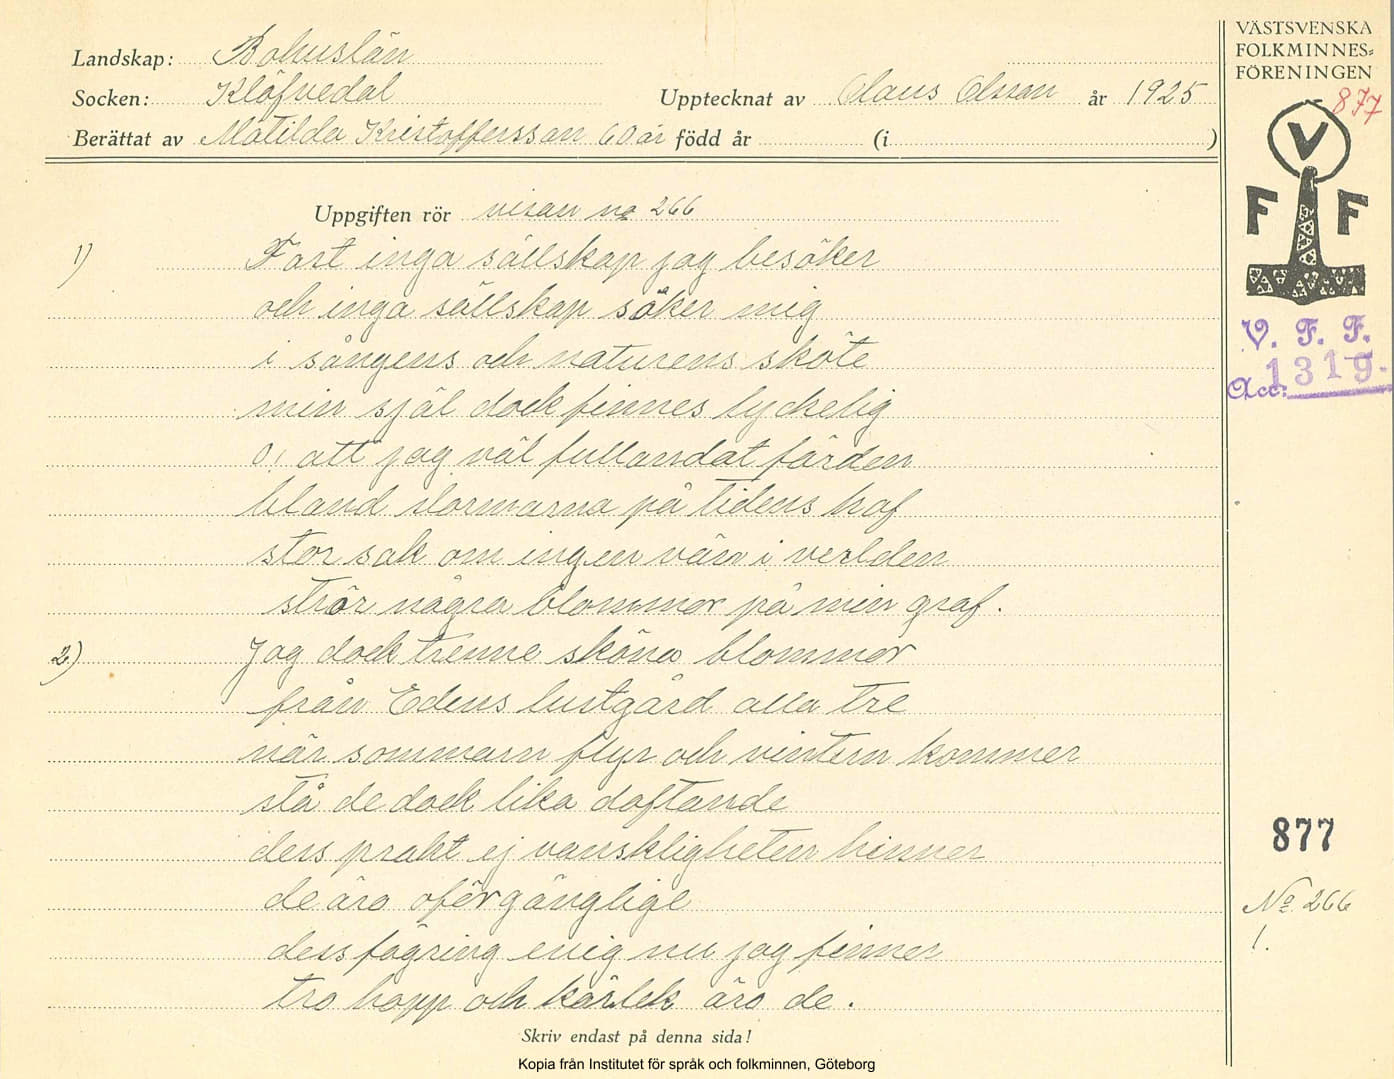 Landskap: Bohuslän
Socken: Klöfvedal
Upptecknat av Claus Olsson år 1925
Berättat av Matilda Kristofferssan 60 år född år (i )
Uppgiften rör visan no 266
1) Fast inga sällskap jag besöker
och inga sällskap söker mig
i sångens och naturens sköte
min själ dock finnes lyckelig
O, att jag väl fullandat färden
bland stormarna på tidens haf
stor sak om ingen vän i verlden
strör några blommor på min graf.
2) Jag dock trenne sköna blommor
från Edens lustgård alla tre
när sommarn flyr och vintern kommer
stå de dock lika doftande
dess prakt ej vanskligheten hinner
de äro oförgänglige
dess fägring evig nu jag finner
tro hopp och kärlek äro de.
Skriv endast på denna sida!
Kopia från Institutet för språk och folkminnen, Göteborg
VÄSTSVENSKA
FOLKMINNES=
FÖRENINGEN
877
V
F F
V. F. F.
Acc: 1319.
877
No 266
1.